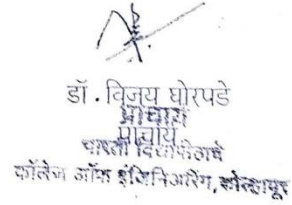 डॉ. विजय घोरपडे
प्राचार्य
प्राचार्य
भारती विद्यापीठाचे
कॉलेज ऑफ इंजिनिअरिंग, कोल्हापूर